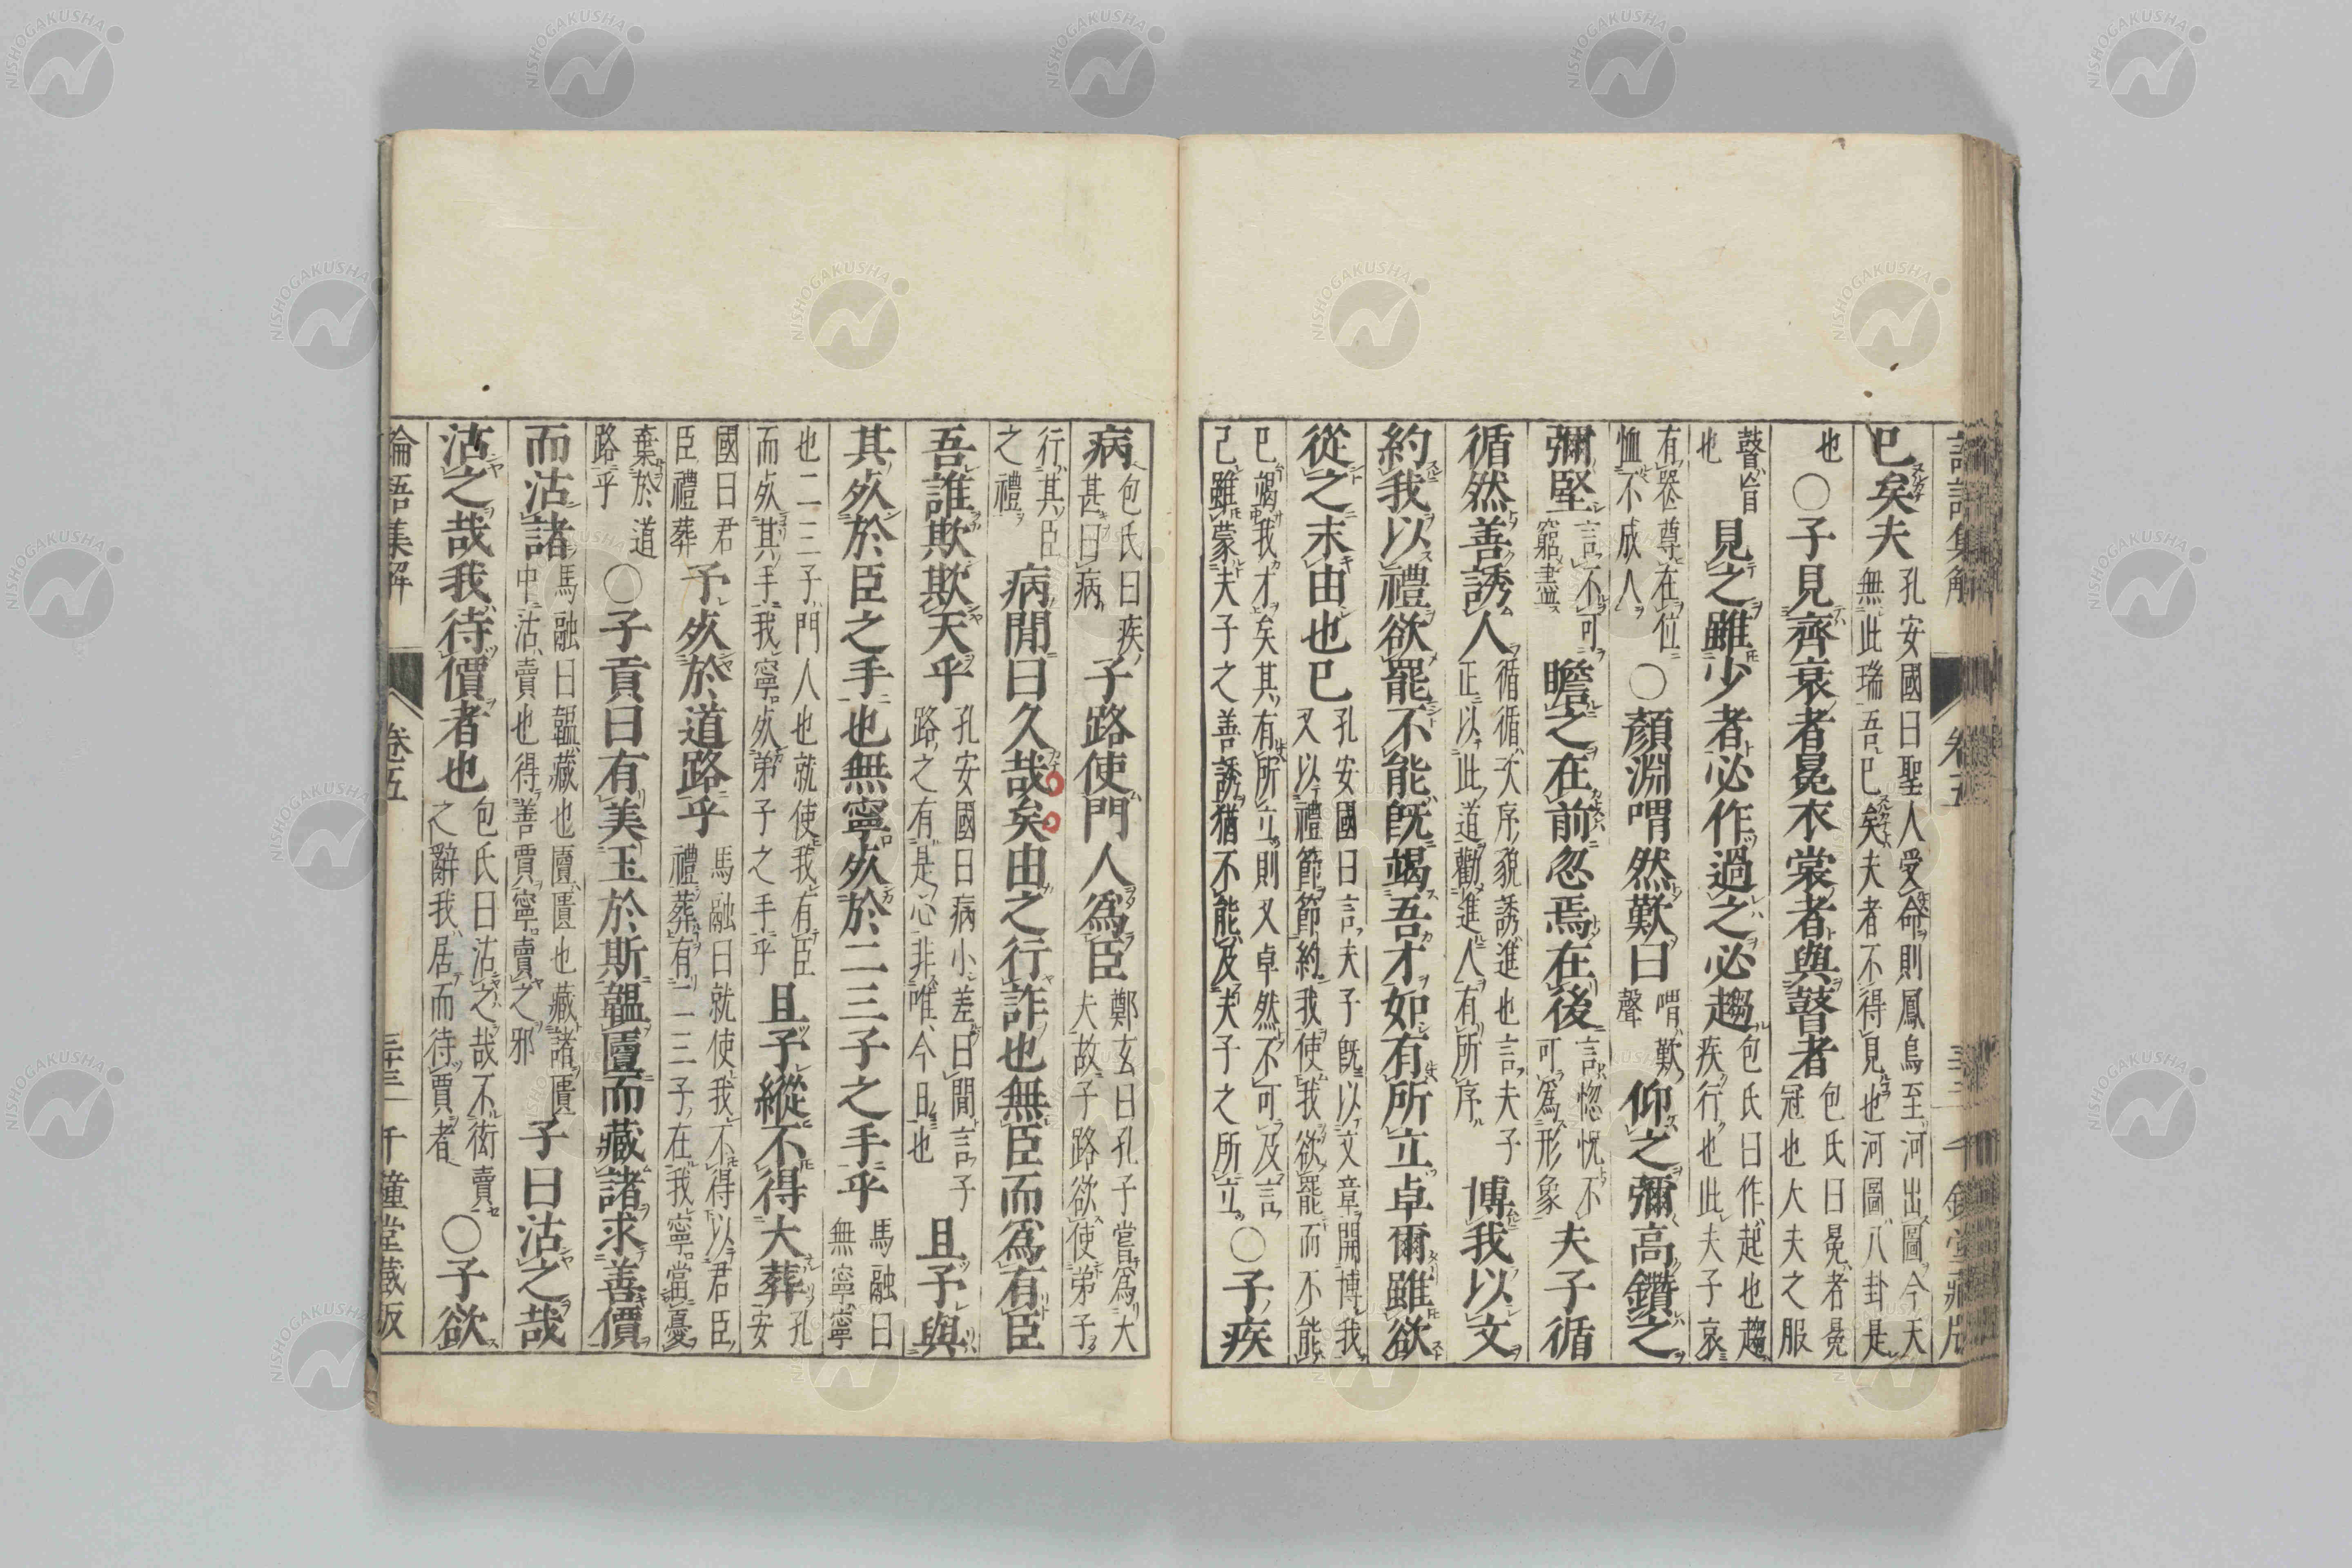 已矣夫 孔安國曰聖人受命則鳳鳥至河出圖今天無此瑞吾已矣夫者不得見也河圖八卦是
也〇子見齊衰者冕衣裳者與瞽者 包氏曰冕者冕冠也大夫之服
瞽盲也 見之雖少者必作過之必趨 包氏曰作起也趨疾行也此夫子哀
有喪尊在位恤不成人 〇顏淵喟然歎曰 喟歎聲 仰之彌高鑽之
彌堅 言不可窮盡 瞻之在前忽焉在後 言惚怳不可爲形象 夫子循
循然善誘人 循循次序貌誘進也言夫子正以此道勸進人有所序 博我以文
約我以禮欲罷不能既竭吾才如有所立卓爾雖欲
從之末由也已 孔安國曰言夫子既以文章開博我又以禮節節約我使我欲罷而不能
已竭我才矣其有所立則又卓然不可及言己雖蒙夫子之善誘猶不能及夫子之所立 〇子疾
病 包氏曰疾甚曰病 子路使門人爲臣 鄭玄曰孔子嘗爲大夫故子路欲使弟子
行其臣之禮 病閒曰久哉矣由之行詐也無臣而爲有臣
吾誰欺欺天乎 孔安國曰病小差曰閒言子路之有是心非唯今日也 且予與
其死於臣之手也無寧死於二三子之手乎 馬融曰無寧寧
也二三子門人也就使我有臣而死其手我寧死弟子之手乎 且予縱不得大葬 孔安
國曰君臣禮葬 予死於道路乎 馬融曰就使我不得以君臣禮葬有二三子在我寧當憂
棄於道路乎 〇子貢曰有美玉於斯韞匵而藏諸求善價
而沽諸 馬融曰韞藏也匵匱也藏諸匱中沽賣也得善賈寧賣之邪 子曰沽之哉
沽之哉我待價者也 包氏曰沽之哉不衒賣之辭我居而待賈者 〇子欲
論語集解 卷五 千鐘堂藏版